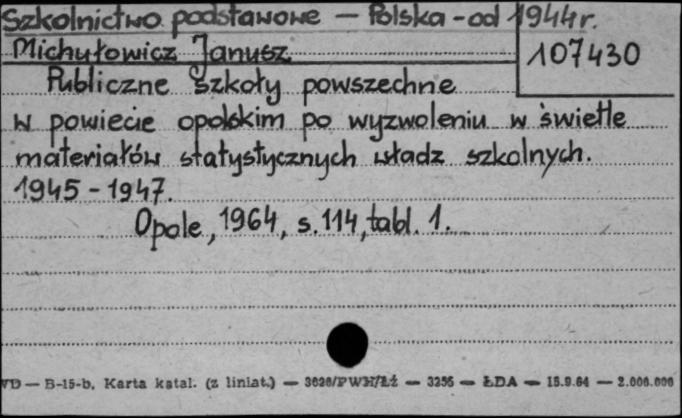 Szkolnictwo podstawowe — Polska - od 1944 r.
Michułowicz Janusz
107430
Publiczne szkoły powszechne
w powiecie opolskim po wyzwoleniu w świetle
materiałów statystycznych władz szkolnych.
1945 - 1947.
Opole, 1964, s. 114, tabl. 1.
VD — B-15-b. Karta katal. (z liniat.) — 3626/PWH/Łż — 3256 — ŁDA — 15.9.64 — 2.000.000